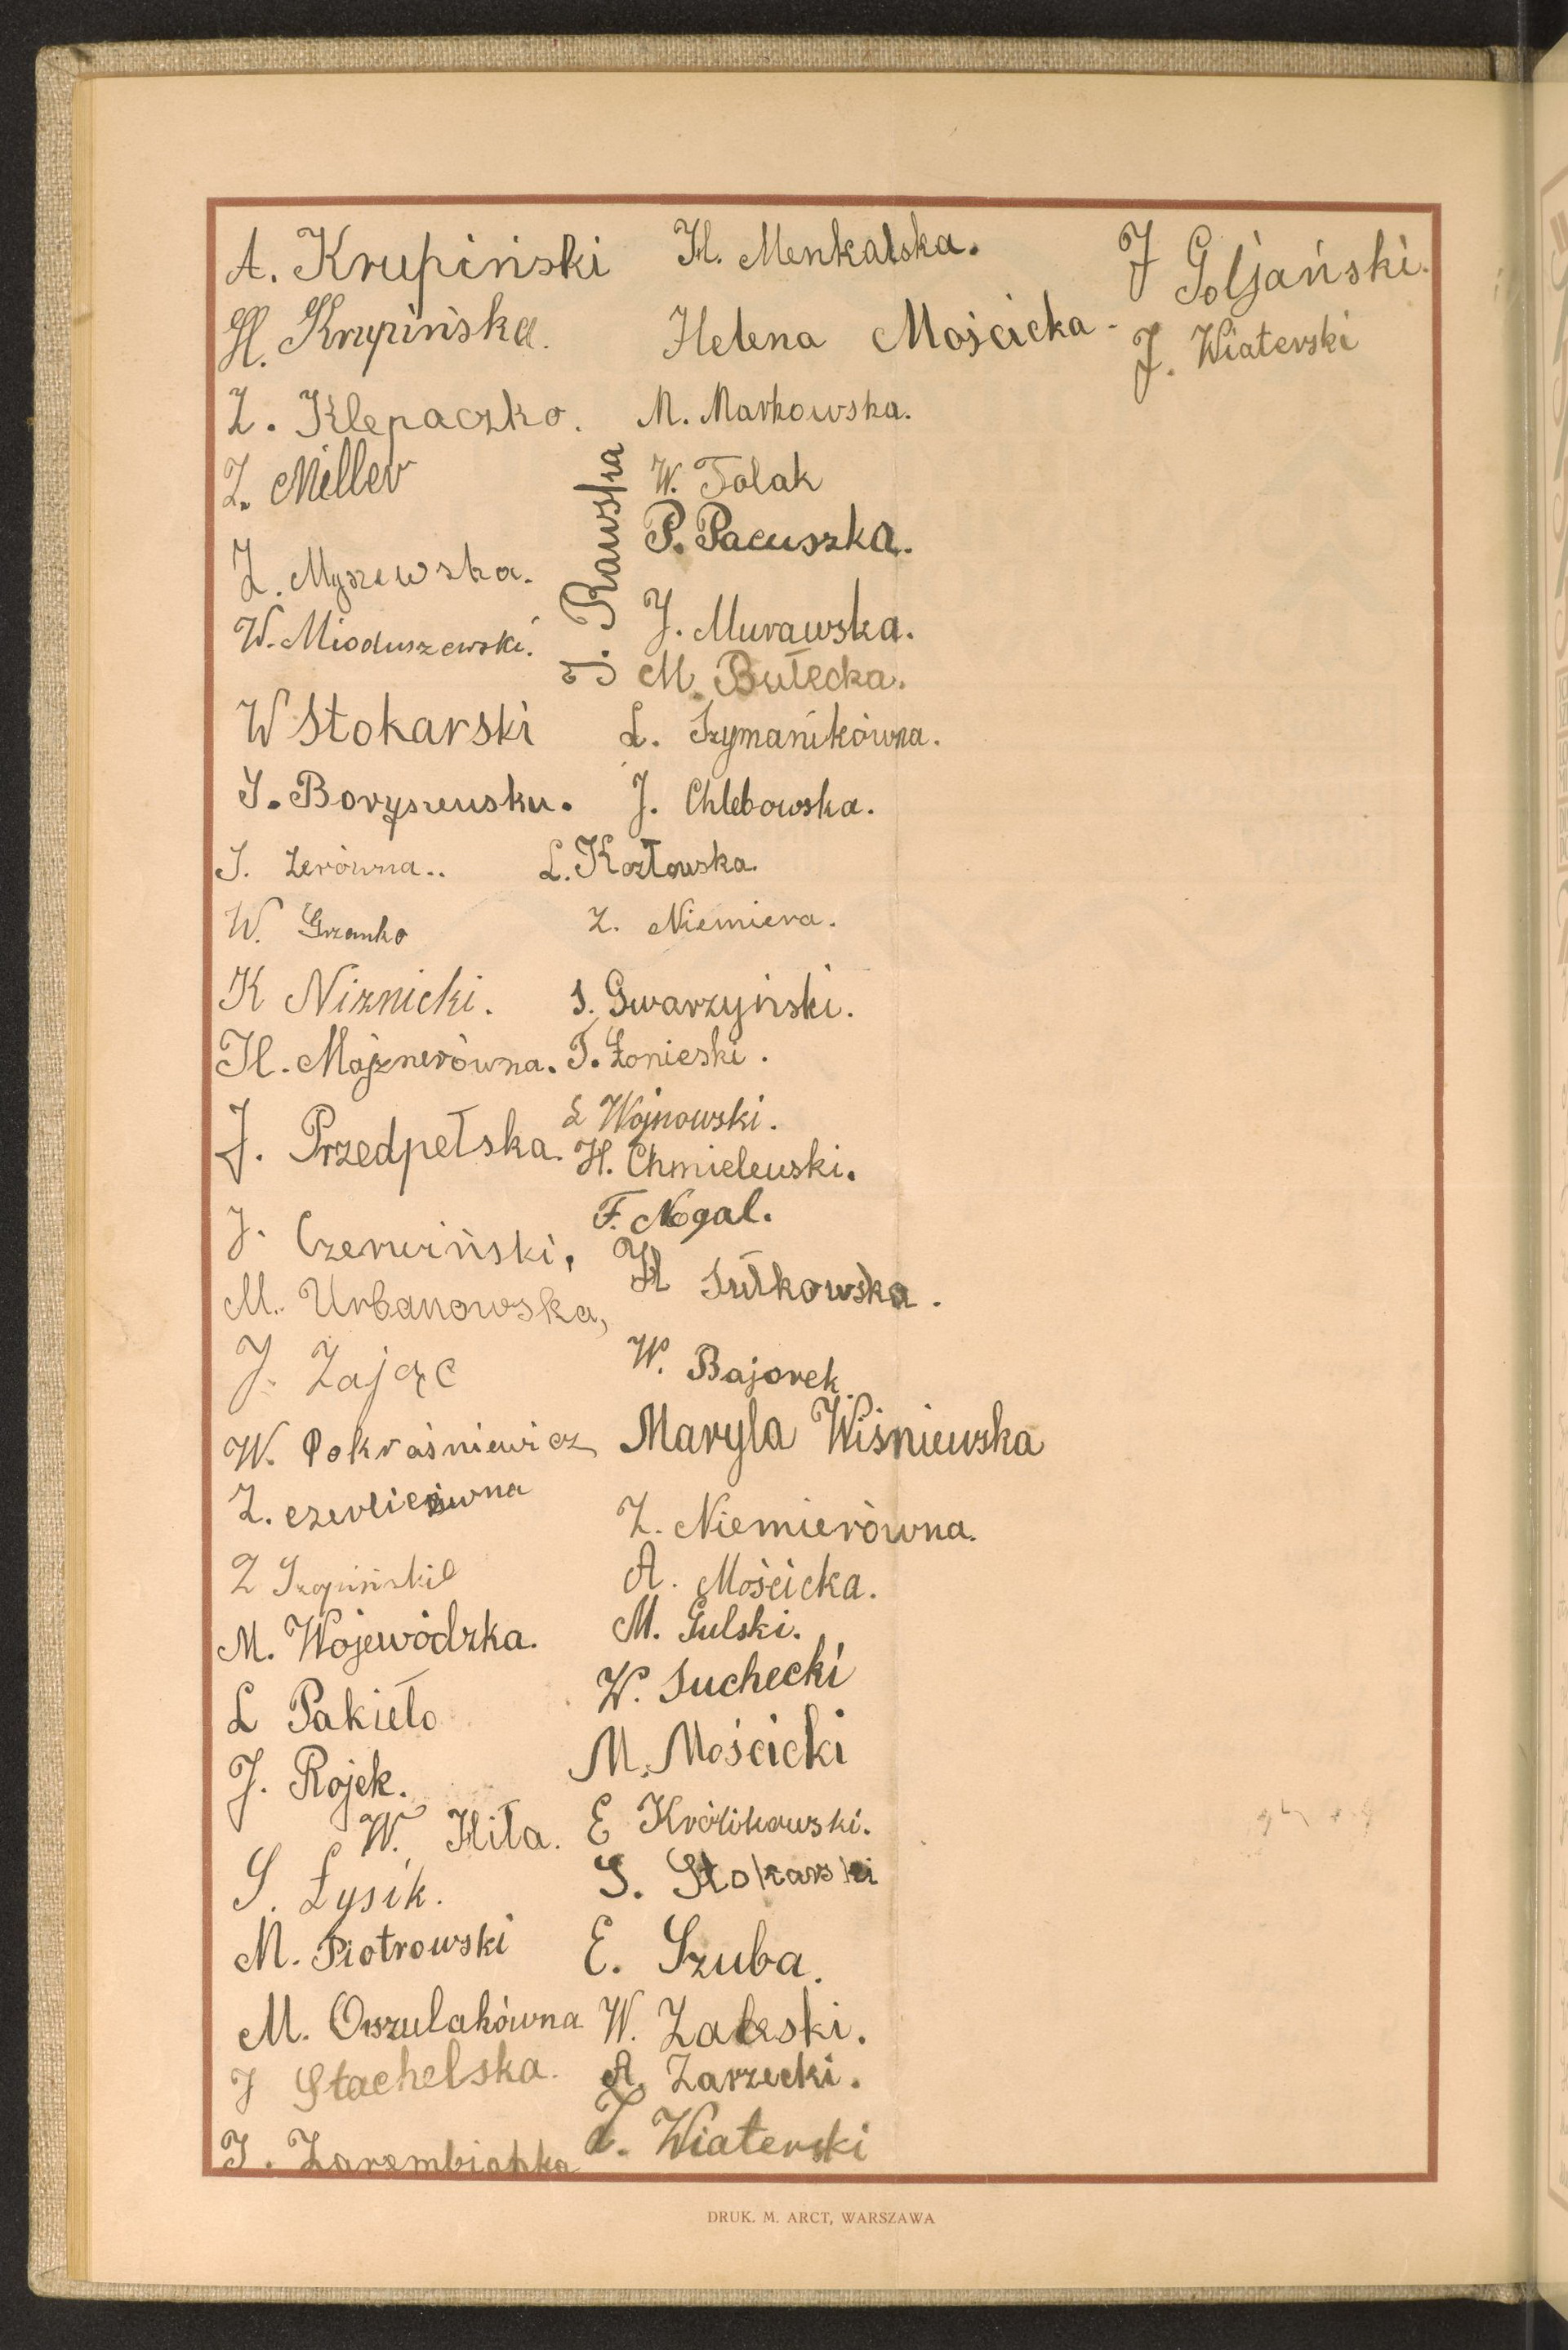 A. Krupiński
H. Krupińska.
Z. Klepaczko.
Z. Miller
Z. Myszewska.
W. Mioduszewski.
W Stokarski
J. Boryszewsku.
J. Zerówna..
W. Grzanko
K Niznicki.
H. Majznerówna.
J. Przedpełska.
J. Czerwiński.
M. Urbanowska,
J. Zając
W. Pokraśniewicz
Z.
Z
M. Wojewódzka.
L Pakieło
J. Rojek.
W. Hiła.
S. Łysik.
M. Piotrowski
M. Orszulakówna
J Stachelska.
J. Zarembianka
J. Rawska
H. Menkalska.
Helena Mościcka.
M. Markowska.
W. Tolak
P. Pacuszka.
J. Murawska.
M. Bułecka.
L. Szymanikówna.
J. Chlebowska.
L. Kozłowska.
Z. Niemiera.
S. Gwarzyński.
T. Łonieski.
L Wojnowski.
H. Chmielewski.
F. Nogal.
H Sułkowska.
W. Bajorek.
Maryla Wiśniewska
Z. Niemierówna.
A. Mościcka.
M. Gulski.
W. Suchecki
M. Mościcki
E Królikowski.
S. Stokarski
E. Szuba.
W. Zaleski.
A. Zarzecki.
Z. Wiaterski
J Goljański.
J. Wiaterski
DRUK. M. ARCT, WARSZAWA